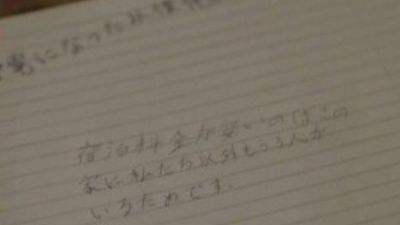 になった
宿泊料金が安いのはこの
家に私たち以外もう1人が
いるためです。